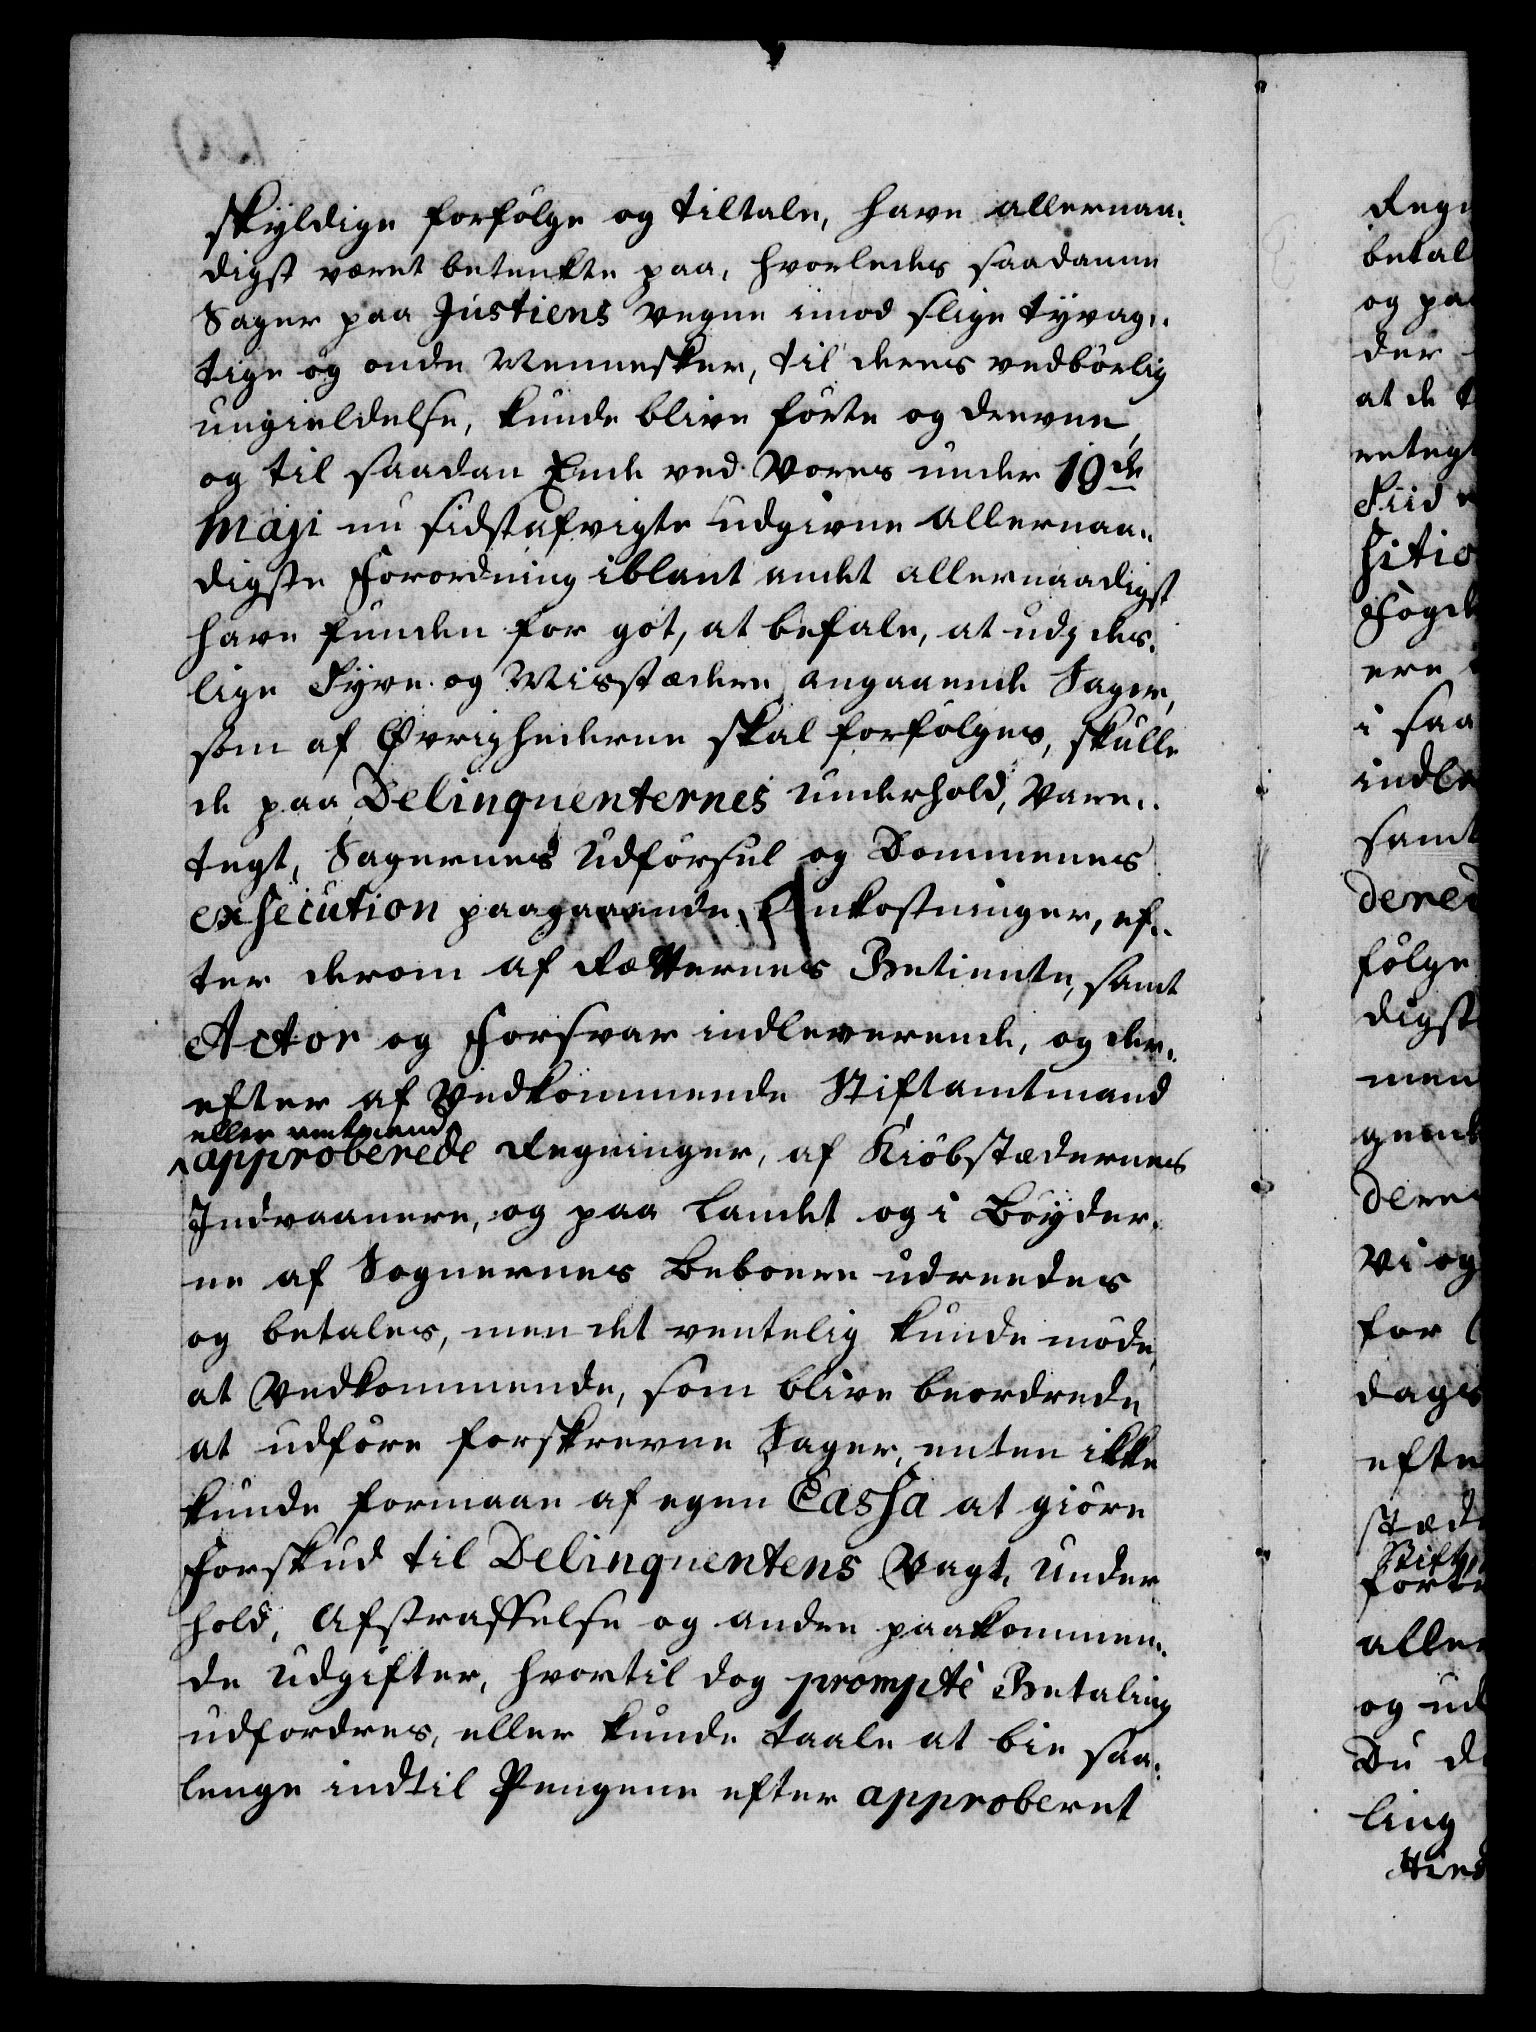 skyldige forfølge og tiltale, have allernaa„
digst været betenkte paa, hvorledes saadanne
Sager paa Justiens vegne imod slige tyvag„
tige og onde Mennesker, til deres vedbørlig
undgieldelse, kunde blive førte og drevne,
og til saadan Ende ved Vores under 19de
Maji nu sidstafvigte udgivne allernaa„
digste Forordning iblant andet allernaadigst
have funden for got, at befale, at udj des„
lige Tyve og Misdædere angaaende Sager,
som af Øvrighederne skal forfølges, skulle
de paa Delinquenternes underhold, Vare„
tegt, Sagernes Udførsel og Dommenes
exsecution paagaaende Omkostninger, ef„
ter derom af Rætternes Betiente, samt
Actor og Forsvar indleverende, og der„
efter af Vedkommende Stiftamtmand
eller amtmand
approberede Regninger, af Kiøbstædernes
Indvaanere, og paa Landet og i Bøyder„
ne af Sognernes Beboere udreedes
og betales, men det ventelig kunde møde,
at Vedkommende, som blive beordrede
at udføre forskrevne Sager, enten ikke
kunde formaae af egen Cassa at giøre
Forskud til Delinquentens Vagt, Under
hold, Afstraffelse og andre paakommen„
de Udgifter, hvortil dog prompte Betaling
udfordres, eller kunde taale at bie saa„
lenge indtil Pengene efter approberet
betal
og paa
der
at de
Fogde
ere
i saa
indle
samt
følge
digst
men
Vi og
for
dags
efte
Stift
aller
og ud
Du
ling